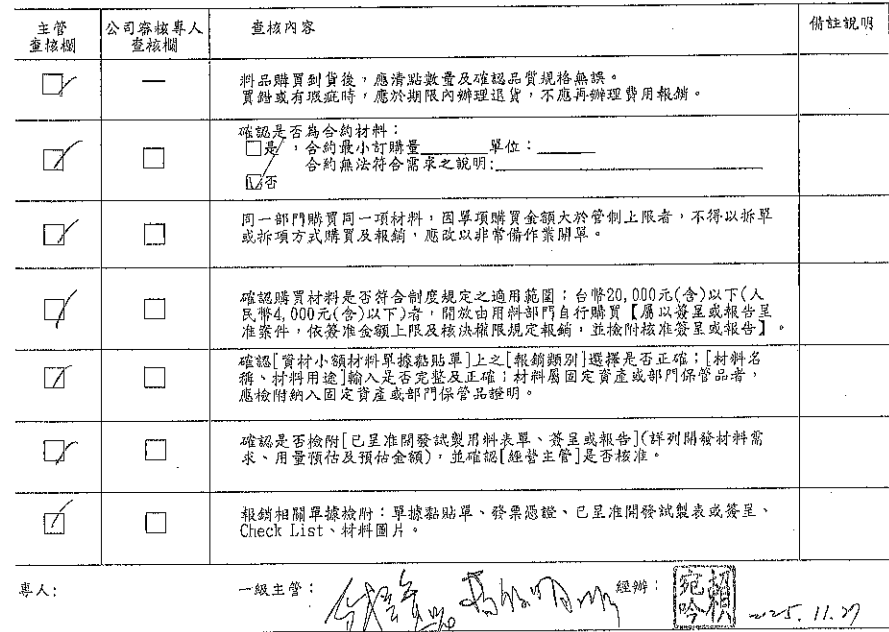 主管
查核欄
公司審核專人
查核欄
查核內容
備註說明
料品購買到貨後，應清點數量及確認品質規格無誤。
買錯或有瑕疵時，應於期限內辦理退貨，不應再辦理費用報銷。
確認是否為合約材料：
□是，合約最小訂購量________單位：________
合約無法符合需求之說明:________
☑否
同一部門購買同一項材料，因單項購買金額大於管制上限者，不得以拆單
或拆項方式購買及報銷，應改以非常備作業開單。
確認購買材料是否符合制度規定之適用範圍：台幣20,000元(含)以下(人
民幣4,000元(含)以下)者，開放由用料部門自行購買【屬以簽呈或報告呈
准案件，依簽准金額上限及核決權限規定報銷，並檢附核准簽呈或報告】。
確認[資材小額材料單據黏貼單]上之[報銷類別]選擇是否正確；[材料名
稱、材料用途]輸入是否完整及正確；材料屬固定資產或部門保管品者，
應檢附納入固定資產或部門保管品證明。
確認是否檢附[已呈准開發試製用料表單、簽呈或報告](詳列開發材料需
求、用量預估及預估金額)，並確認[經營主管]是否核准。
報銷相關單據檢附：單據黏貼單、發票憑證、已呈准開發試製表或簽呈、
Check List、材料圖片。
專人:
一級主管：
經辦：
2025.11.27